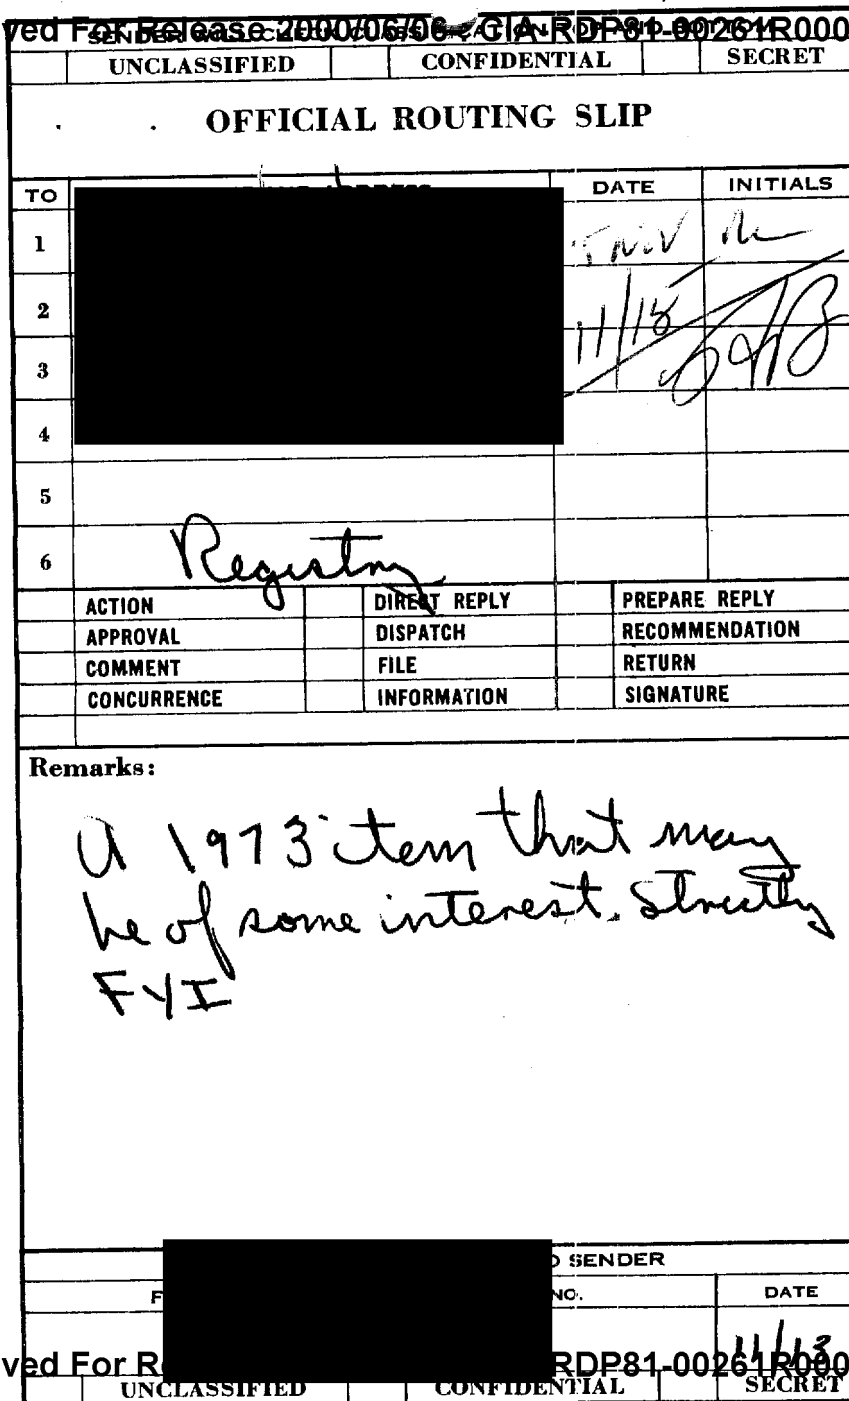 ved For Release 2000/06/06 : CIA-RDP81-00261R000
SENDER WILL CHECK
UNCLASSIFIED CONFIDENTIAL SECRET
OFFICIAL ROUTING SLIP
TO DATE INITIALS
1 NOV
2 11/18
3
4
5
6 Registry
ACTION DIRECT REPLY PREPARE REPLY
APPROVAL DISPATCH RECOMMENDATION
COMMENT FILE RETURN
CONCURRENCE INFORMATION SIGNATURE
Remarks:
A 1973 item that may
be of some interest. Strictly
FYI
SENDER
NO. DATE
11/13
ved For RDP81-00261R000
UNCLASSIFIED CONFIDENTIAL SECRET